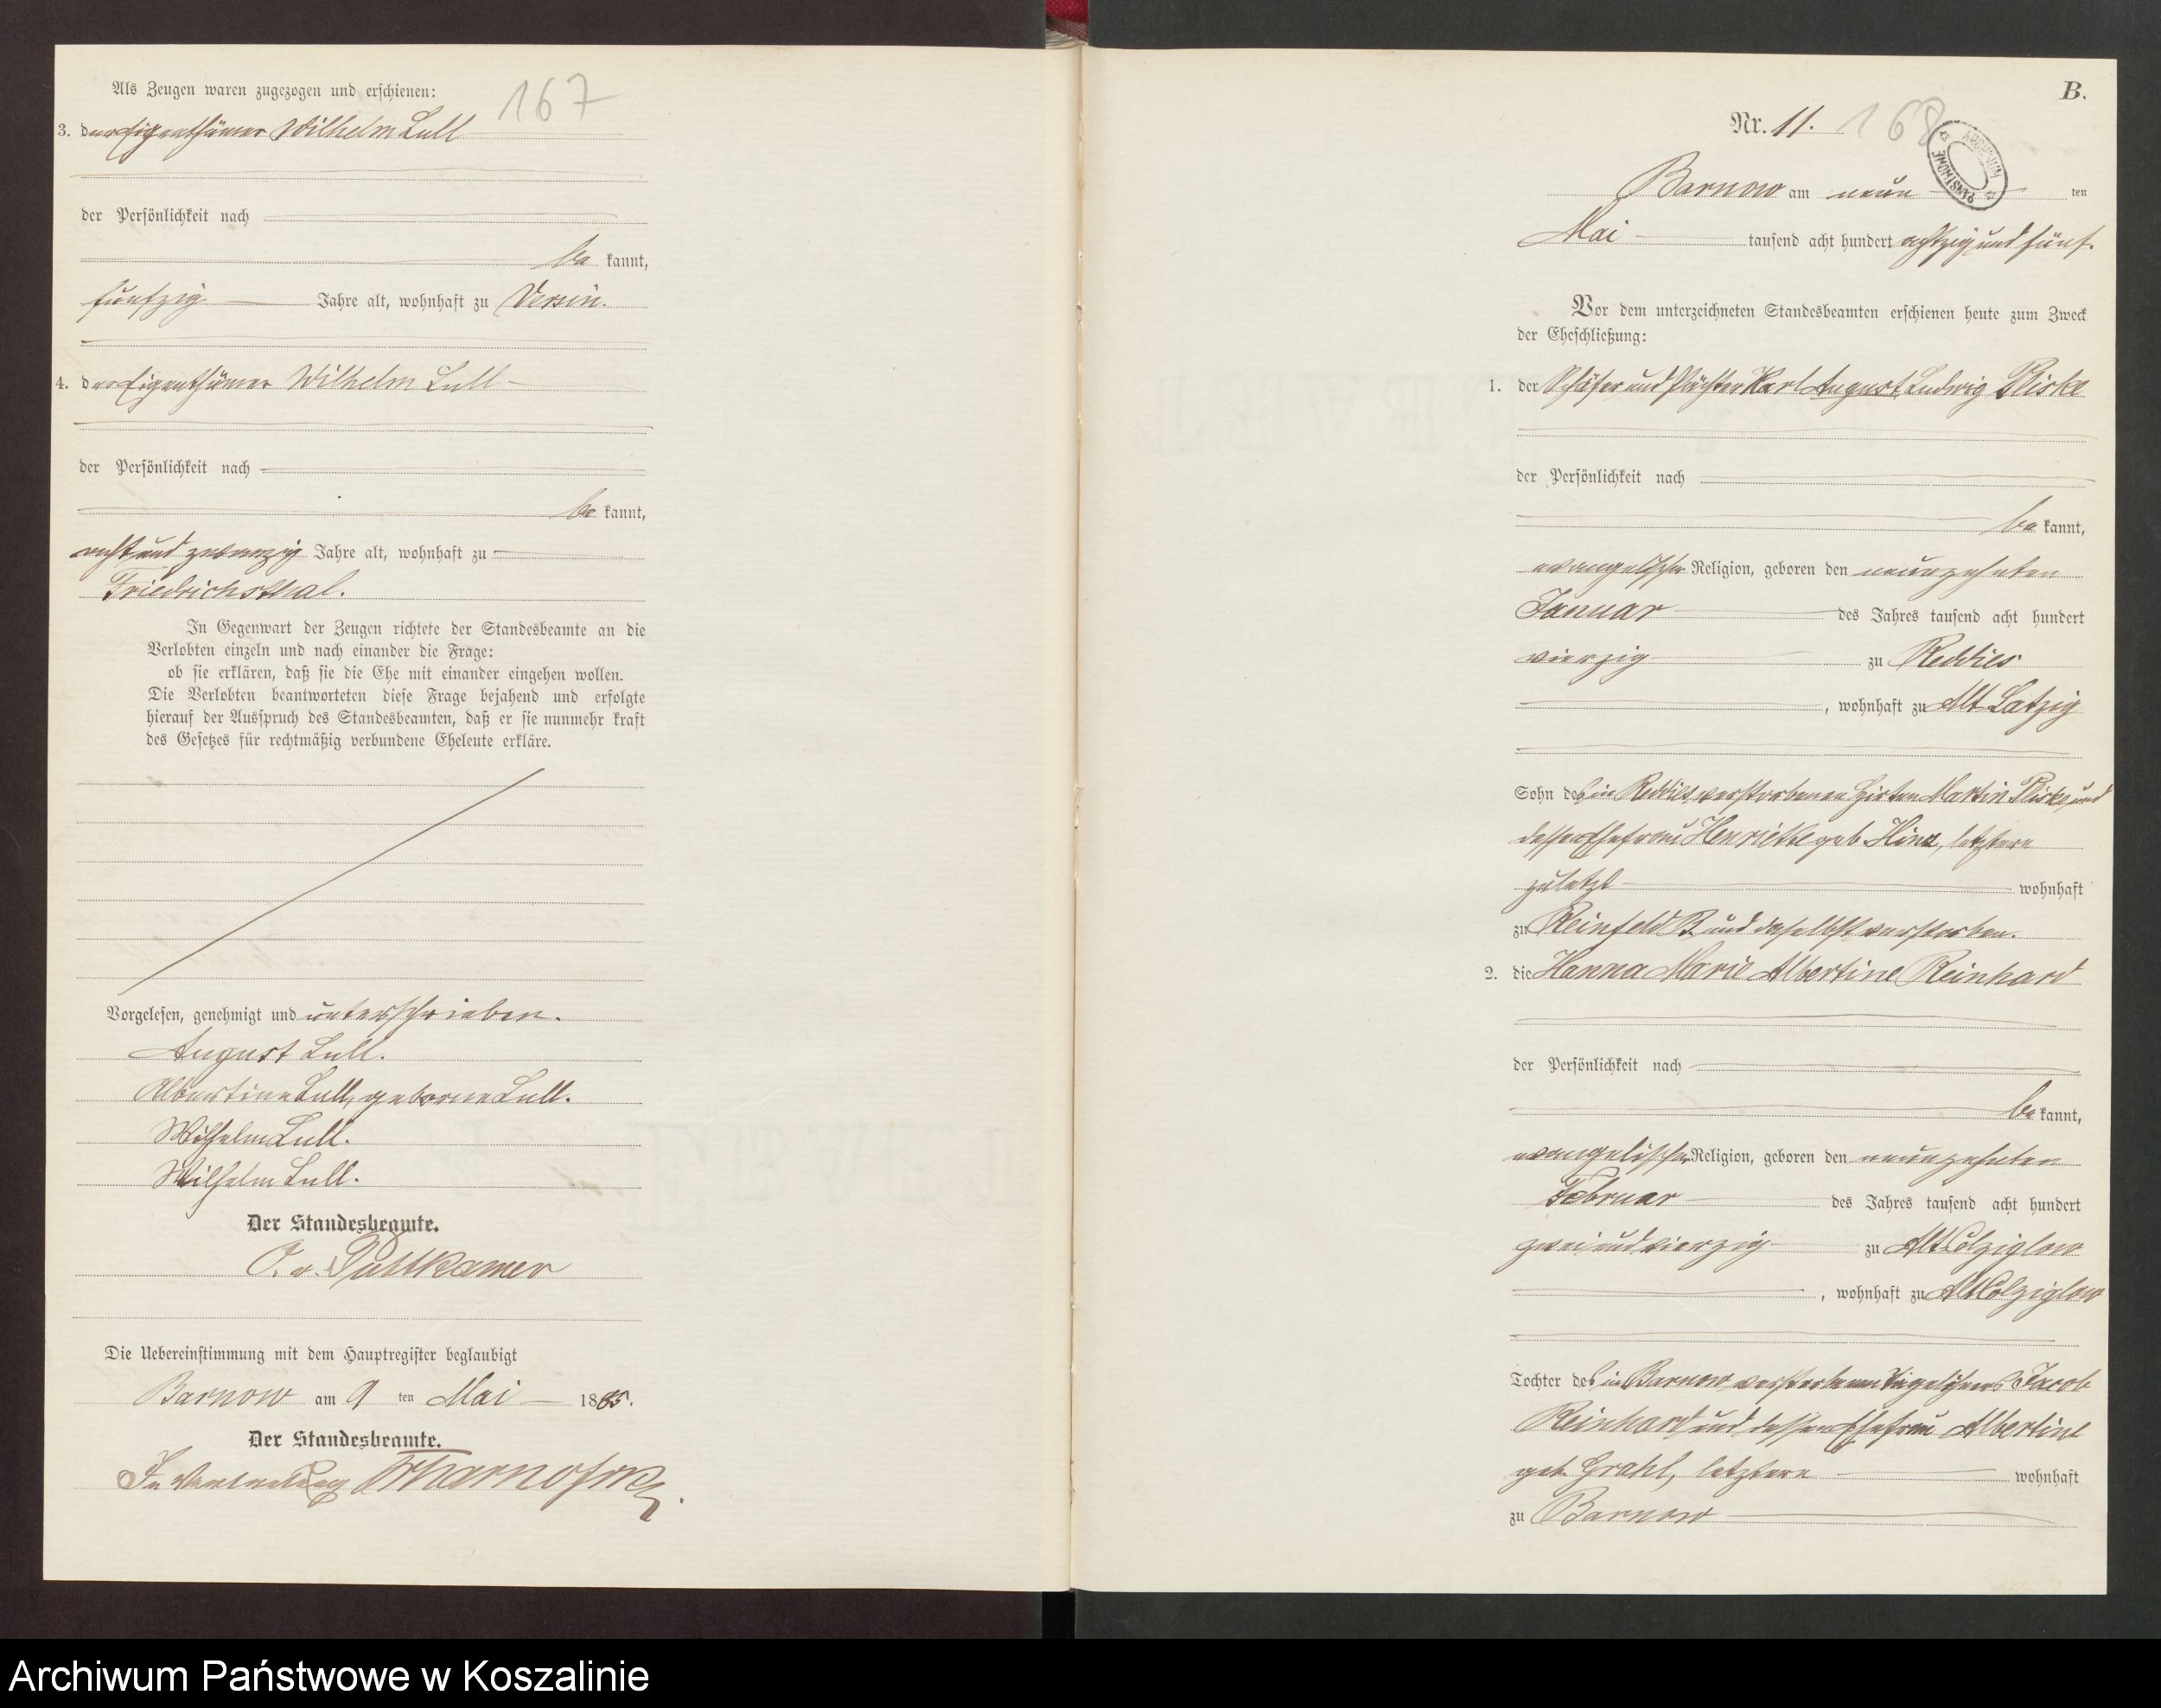 Als Zeugen waren zugezogen und erschienen:
167
3. der Eigenthümer Wilhelm Lull
der Persönlichkeit nach
be kannt,
funfzig Jahre alt, wohnhaft zu Versin.
4. der Eigenthümer Wilhelm Lull
der Persönlichkeit nach
be kannt,
acht und zwanzig Jahre alt, wohnhaft zu
Friedrichsthal.
In Gegenwart der Zeugen richtete der Standesbeamte an die
Verlobten einzeln und nach einander die Frage:
ob sie erklären, daß sie die Ehe mit einander eingehen wollen.
Die Verlobten beantworteten diese Frage bejahend und erfolgte
hierauf der Ausspruch des Standesbeamten, daß er sie nunmehr kraft
des Gesetzes für rechtmäßig verbundene Eheleute erkläre.
Vorgelesen, genehmigt und unterschrieben.
August Lull.
Albertine Lull, geborne Lull.
Wilhelm Lull.
Wilhelm Lull.
Der Standesbeamte.
v. Puttkamer
Die Uebereinstimmung mit dem Hauptregister beglaubigt
Barnow am 9 ten Mai 1885.
Der Standesbeamte.
In Vertretung
B.
Nr. 11. 168
ARCHIWUM PAŃSTWOWE
Barnow am neun ten
Mai tausend acht hundert achtzig und fünf.
Vor dem unterzeichneten Standesbeamten erschienen heute zum Zweck
der Eheschließung:
1. der Schäfer und Pächter Karl August Ludwig Piske
der Persönlichkeit nach
be kannt,
evangelischer Religion, geboren den neunzehnten
Januar des Jahres tausend acht hundert
vierzig zu Reddies
, wohnhaft zu Alt Latzig
Sohn des in Reddies verstorbenen Hirten Martin Piske und
dessen Ehefrau Henriette geb. Hinz, letztere
zuletzt wohnhaft
zu Reinfeld B und daselbst verstorben.
2. die Hanna Marie Albertine Reinhard
der Persönlichkeit nach
be kannt,
evangelischer Religion, geboren den neunzehnten
Februar des Jahres tausend acht hundert
zwei und vierzig zu Alt Colziglow
, wohnhaft zu Alt Colziglow
Tochter des in Barnow verstorbenen Tagelöhners Jacob
Reinhard und dessen Ehefrau Albertine
geb. Grahl, letztere wohnhaft
zu Barnow
Archiwum Państwowe w Koszalinie